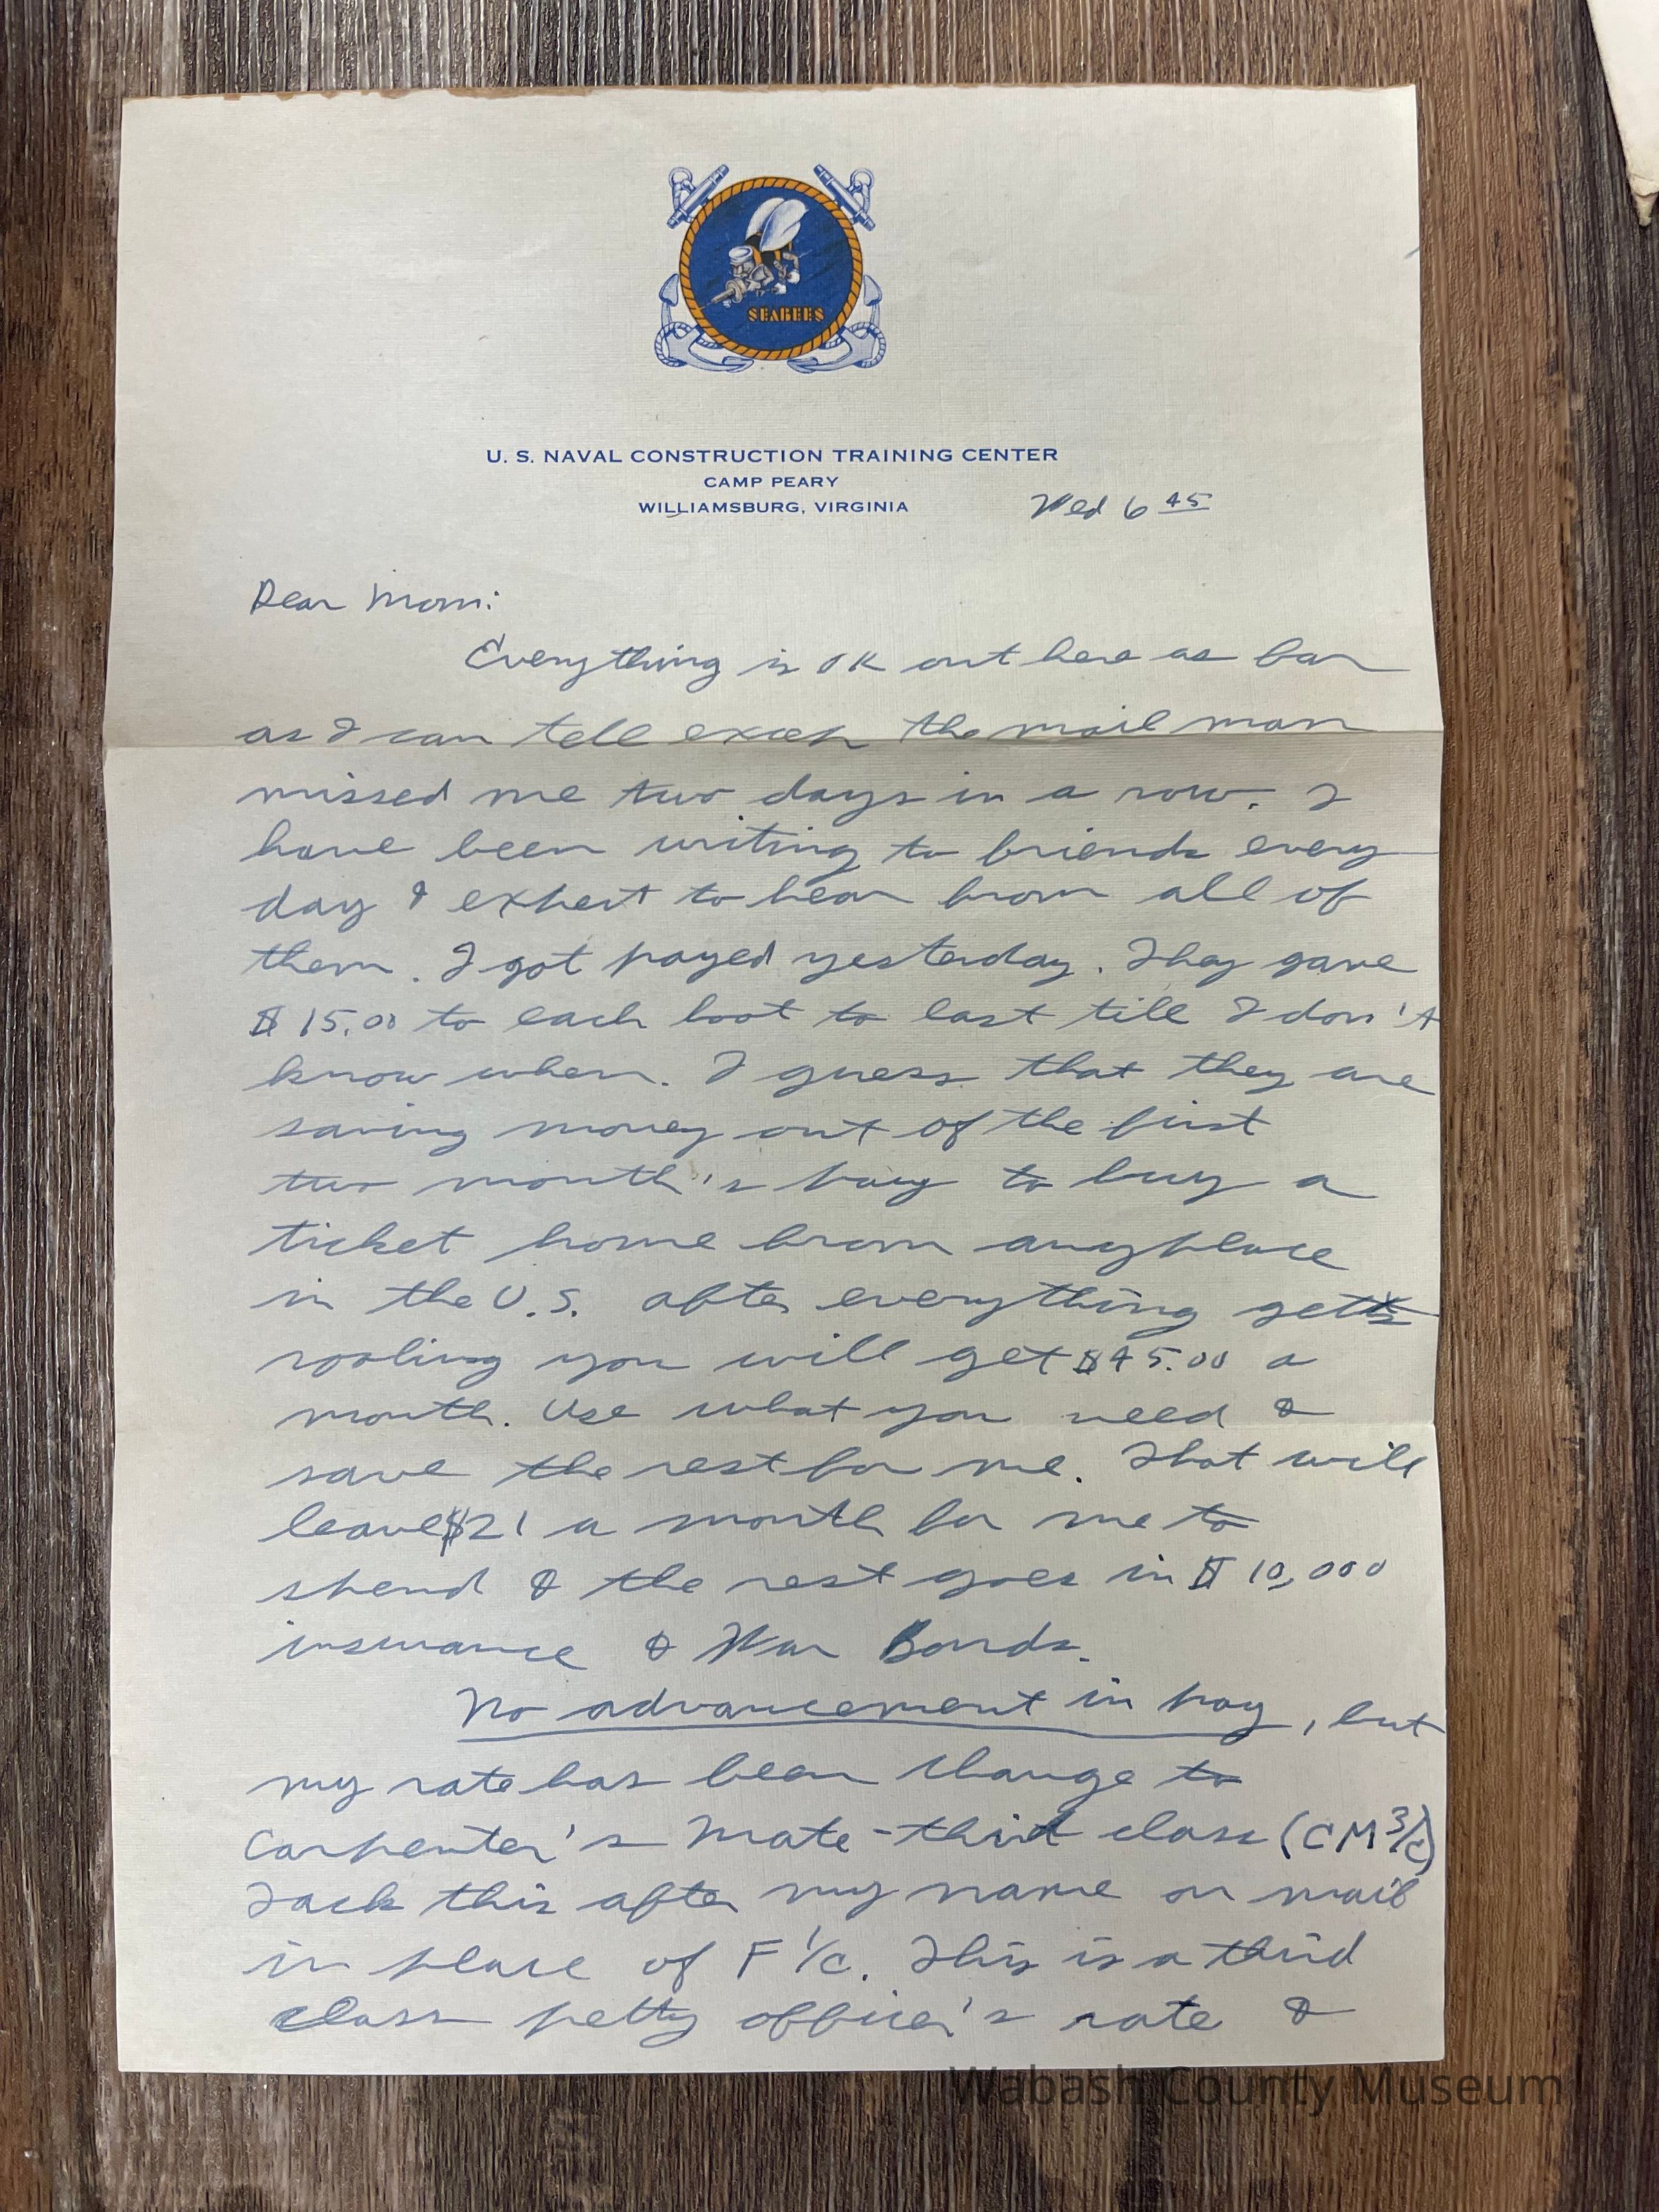 SEABEES
U. S. NAVAL CONSTRUCTION TRAINING CENTER
CAMP PEARY
WILLIAMSBURG, VIRGINIA
Wed 6 45
Dear Mom:
Everything is OK out here as far
as I can tell excep the mail man
missed me two days in a row. I
have been writing to friends every
day & expect to hear from all of
them. I got payed yesterday. They gave
$15.00 to each boot to last till I don't
know when. I guess that they are
saving money out of the first
two month's pay to buy a
ticket home from anyplace
in the U.S. after everything gets
rooling you will get $45.00 a
month. Use what you need &
save the rest for me. That will
leave $21 a month for me to
spend & the rest goes in $10,000
insurance & War Bonds.
No advancement in pay, but
my rate has been change to
Carpenter's Mate - third class (CM 3/c)
Tack this after my name on mail
in place of F 1/c. This is a third
class petty officer's rate &
Wabash County Museum